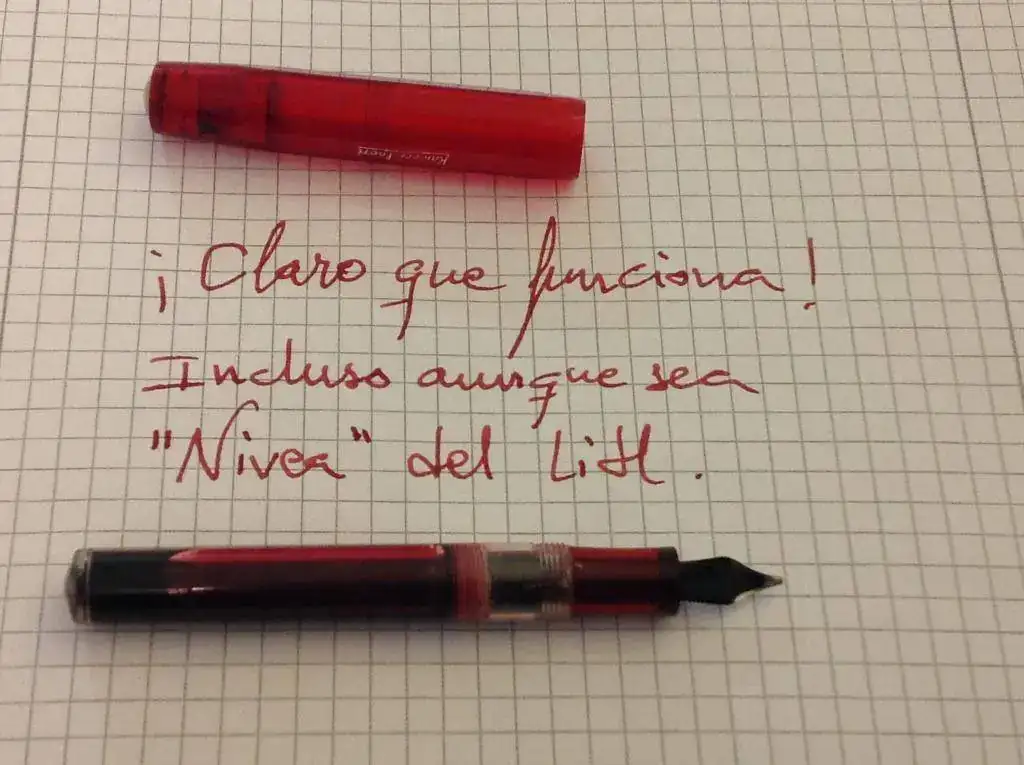 ¡Claro que funciona!
Incluso aunque sea
"Nivea" del Lidl.